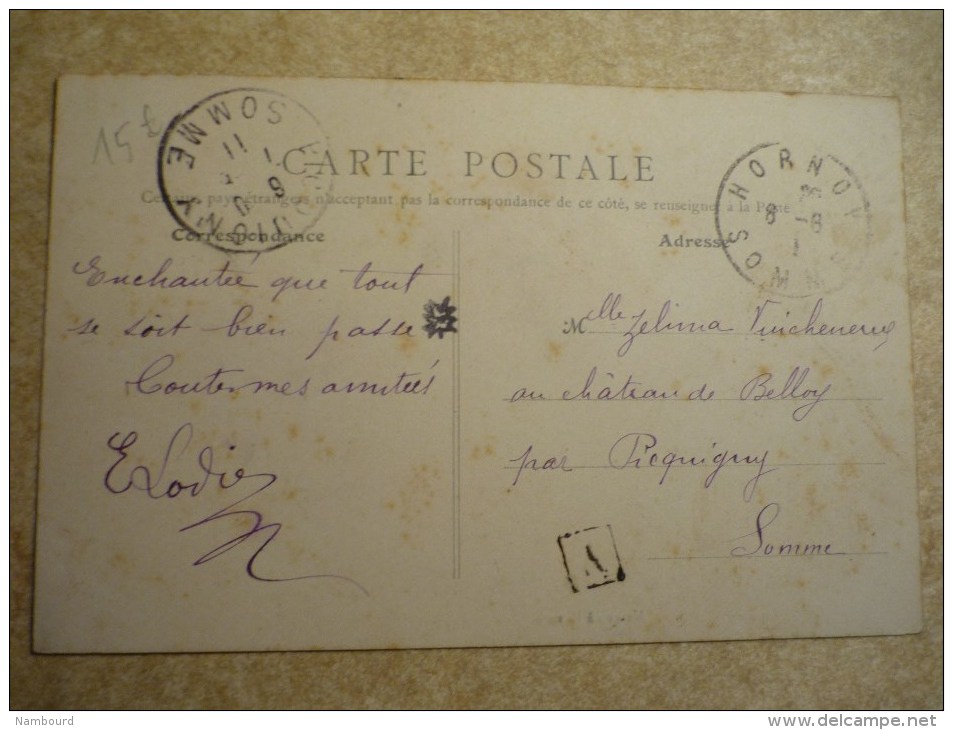 15 £
SOMME
PICQUIGNY
HORNOY
SOMME
CARTE POSTALE
Certains pays étrangers n'acceptant pas la correspondance de ce côté, se renseigner à la Poste
Correspondance
Adresse
Enchantée que tout
se soit bien passé
Toutes mes amitiés
Elodie
Mlle Zelima
au château de Belloy
par Picquigny
Somme
A
Nambourd
www.delcampe.net